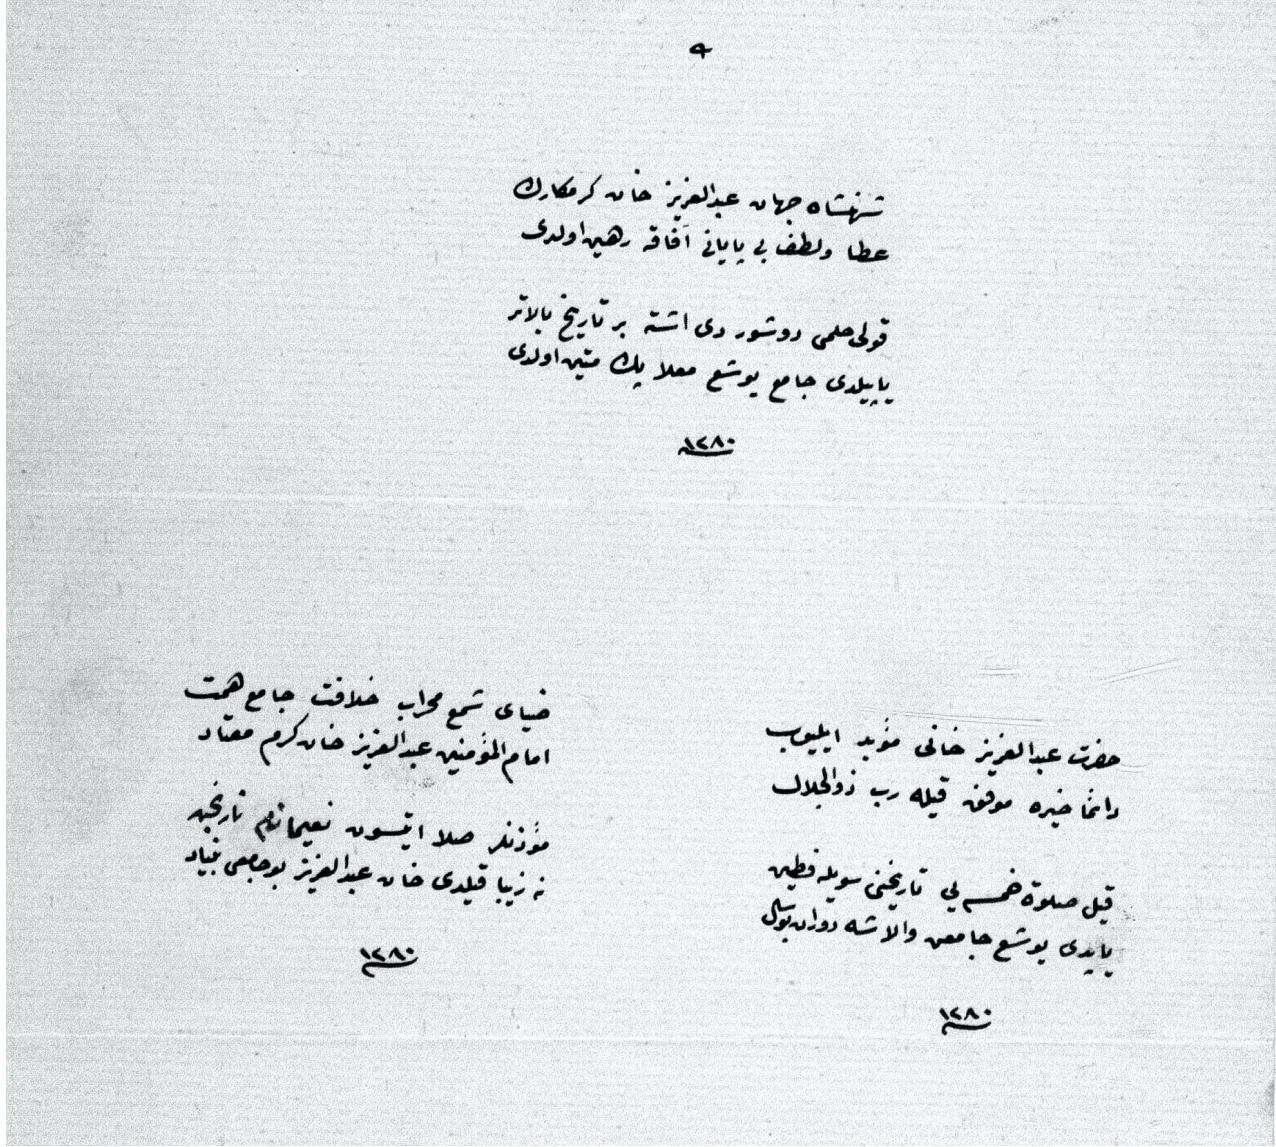 ٩
شهنشاه جهان عبدالعزيز خان كرمكارك
عطا ولطف بى پايانى آفاقه رهين اولدى
قولى حلمى دوشوردى اشته بر تاريخ بالاتر
ياپيلدى جامع يوشع معلا پك متين اولدى
١٢٨٠
حضرت عبدالعزيز خانى مؤبد ايليوب
دائما خيره موفق قيله رب ذوالجلال
قيل صلوة خمسه يى تاريخنى سويله فطين
ياپدى يوشع جامعن والا شه دوران بو سال
١٢٨٠
ضياى شمع محراب خلافت جامع همت
امام المؤمنين عبدالعزيز خان كرم معتاد
مؤذنلر صلا ايتسون نعيما تام تاريخن
نه زيبا قيلدى خان عبدالعزيز بو جامعى بنياد
١٢٨٠